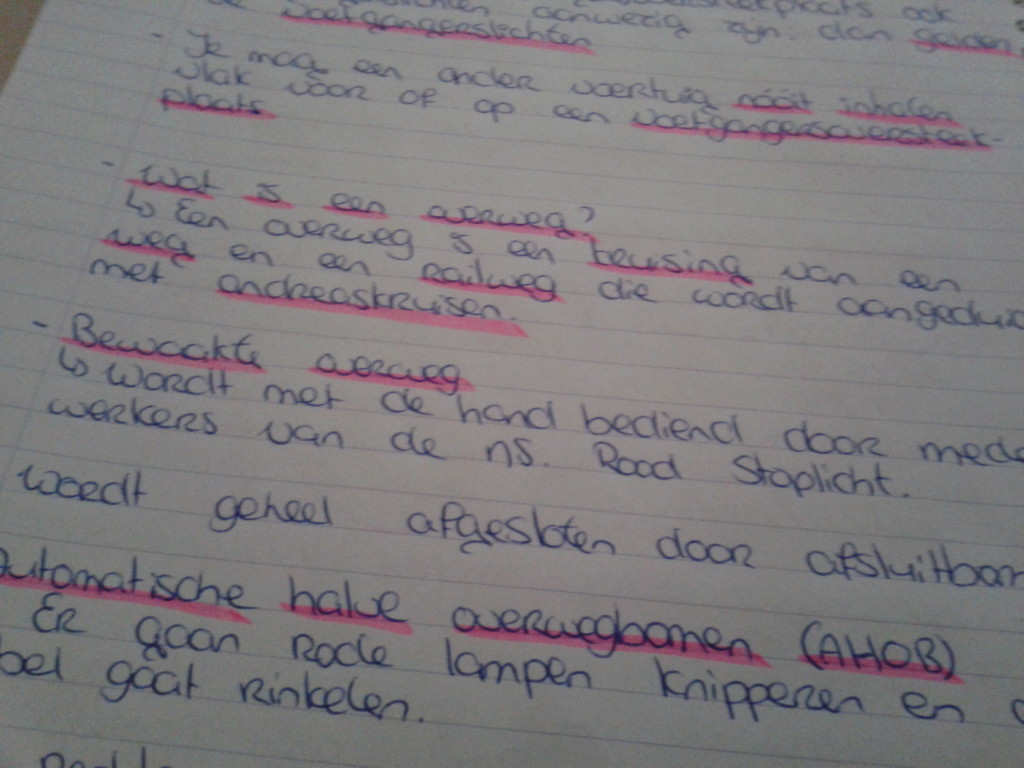 ook
voetgangerslichten aanwezig zijn. dan gelden
- Je mag een ander voertuig nóóit inhalen
vlak voor of op een voetgangersoversteek-
plaats.
- Wat is een overweg?
↳ Een overweg is een kruising van een
weg en een railweg die wordt aangedui
met andreaskruisen.
- Bewaakte overweg
↳ wordt met de hand bediend door mede
werkers van de ns. Rood Stoplicht.
wordt geheel afgesloten door afsluitbom
Automatische halve overwegbomen (AHOB)
Er gaan Rode lampen knipperen en
bel gaat rinkelen.